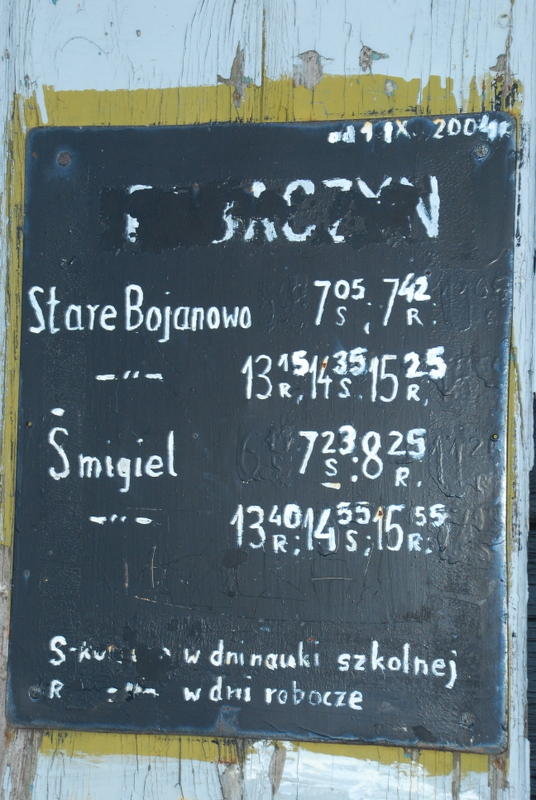 od 1 IX. 2004r
Stare Bojanowo 7 05 S; 7 42 R.
-„- 13 15 R; 14 35 S. 15 25 R,
Śmigiel 7 23 S; 8 25 R.
-„- 13 40 R; 14 55 S; 15 55 R.
S- w dni nauki szkolnej
R -„- w dni robocze